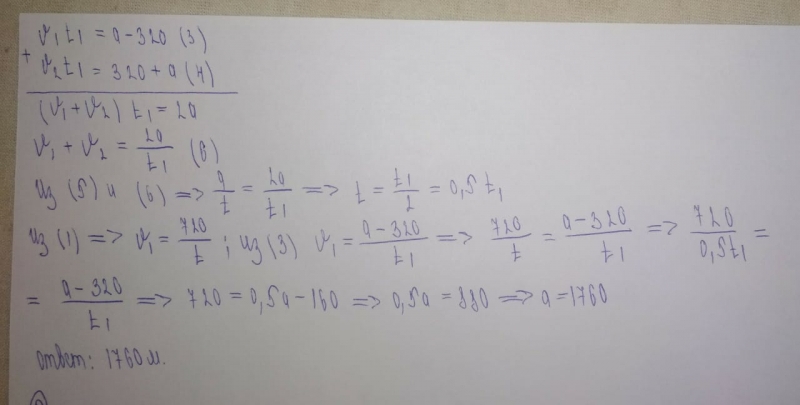 v₁t₁ = a-320 (3)
+
v₂t₁ = 320 + a (4)
(v₁ + v₂) t₁ = 2a
v₁ + v₂ = 2a/t₁ (6)
Из (5) и (6) => a/t = 2a/t₁ => t = t₁/2 = 0,5t₁
Из (1) => v₁ = 720/t ; из (3) v₁ = a-320/t₁ => 720/t = a-320/t₁ => 720/0,5t₁ =
= a-320/t₁ => 720 = 0,5a - 160 => 0,5a = 880 => a = 1760
ответ: 1760 м.